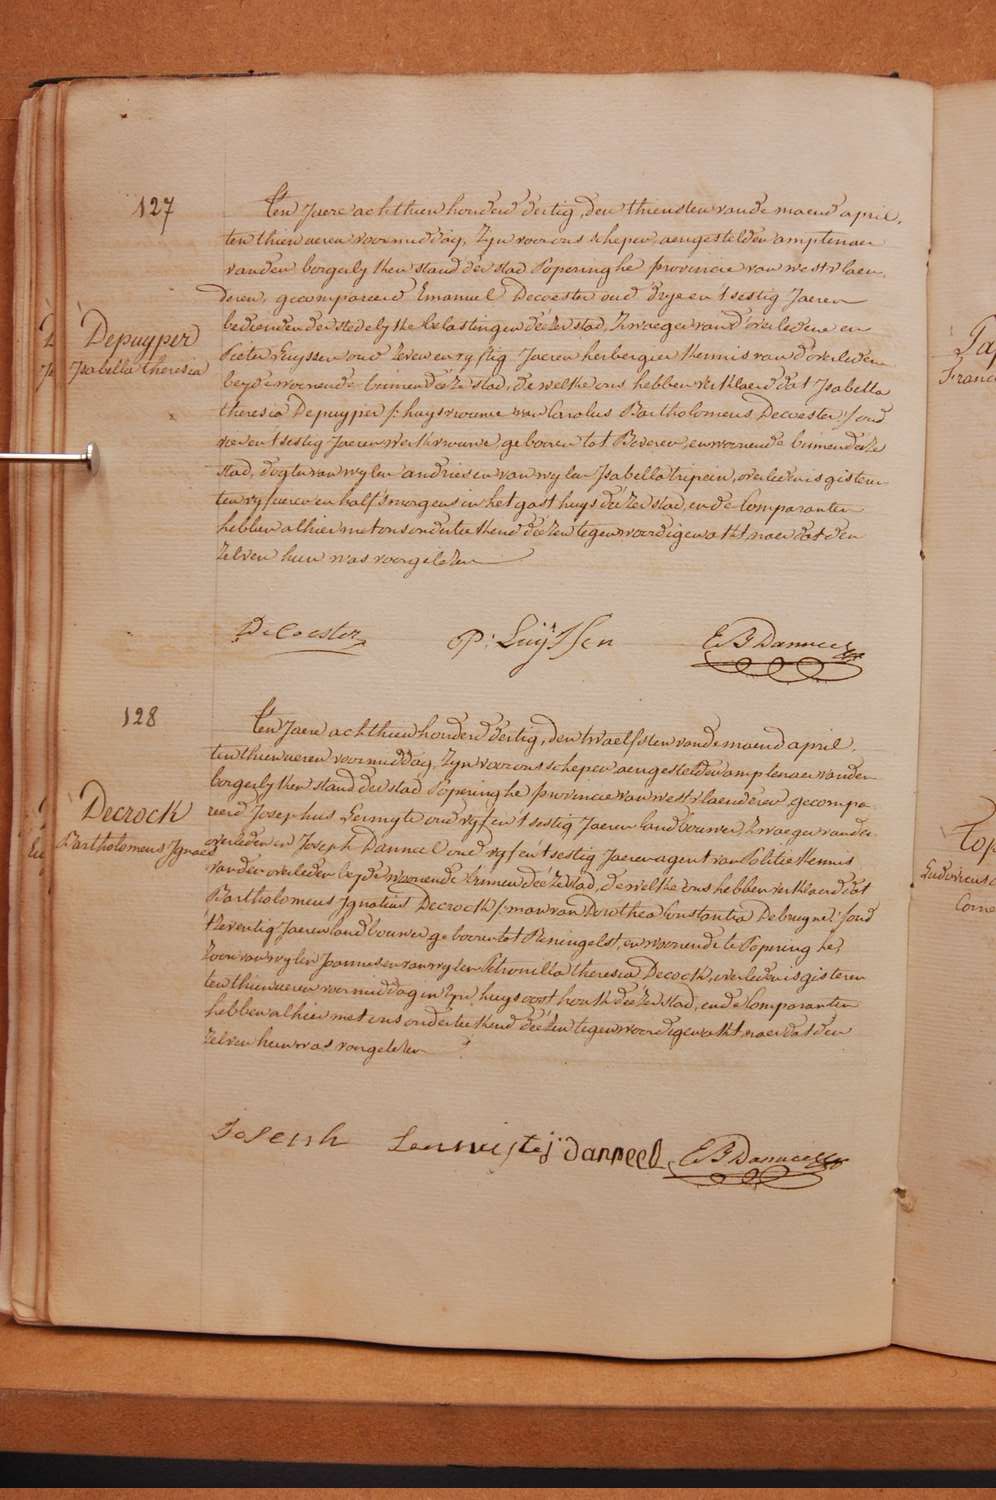 127
Ten Jaere achthien honderd dertig, den thiensten vande maend april,
ten thien ueren voormiddag, Zyn voor ons schepen aengestelden amptenaer
vanden borgerlyken stand der stad Poperinghe provincie van westvlaen
deren, gecompareerd Emanuel Decoester oud drye en 't sestig Jaeren
bedienden der stedelyke belastingen deezer stad, Zwager vand'overledene en
Pieter Luyssen oud zeven en vyftig Jaeren herbergier kennis van d'overleden
beyde woonende binnen deeze stad, de welke ons hebben verklaerd dat Isabella
theresia Depuyper /: huysvrouwe van Carolus Bartholomeus Decoester :/ oud
vier en 't sestig Jaeren werkvrouwe gebooren tot Beveren, en woonende binnen deeze
stad, dogter van wylen andries en van wylen Isabella tripein, overleden is gisteren
ten vyf ueren en half 's morgens in het gasthuys deezer stad, en de Comparanten
hebben alhier met ons onderteekend deezen tegenwoordigen akt, naer dat den
zelven hun was voorgelezen
Depuyper
Isabella theresia
DeCoester P: Luÿssen E B Danneel
128
Ten Jaere achthien honderd dertig, den twaelfsten vande maend april,
ten thien ueren voormiddag, Zyn voor ons schepen aengestelden amptenaer vanden
borgerlyken stand der stad Poperinghe provincie van westvlaenderen, gecompa
reerd Josephus Lermyte oud vyf en 't sestig Jaeren landbouwer, Zwager van den
overleden en Joseph Danneel oud vyf en 't sestig Jaeren agent van Politie kennis
van den overleden beyde woonende binnen deeze stad, de welke ons hebben verklaerd dat
Bartholomeus Ignatius Decrock /: man van Dorothea Constantia Debruyne :/ oud
t'zeventig Jaeren landbouwer gebooren tot Reningelst, en woonende te Poperinghe,
zoon van wylen Joannes en van wylen Petronilla theresia Decock, overleden is gisteren
ten thien ueren voormiddag in Zyn huys oost houk deezer stad, en de Comparanten
hebben alhier met ons onderteekend deezen tegenwoordigen akt, naer dat den
zelven hun was voorgelezen
Decrock
Bartholomeus Ignaes
Joseph j: Danneel E B Danneel